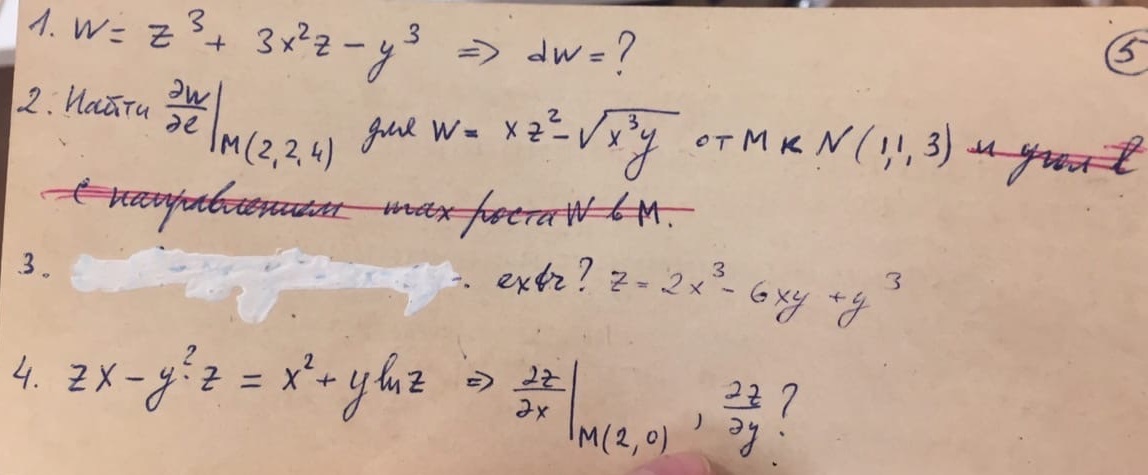 1. W = z³ + 3x²z − y³ ⇒ dw = ?
⑤
2. Найти ∂w/∂e |M(2,2,4) для W = xz² − √(x³y) от M к N(1,1,3) и угол l
с направлением max роста W в M.
3. extr? z = 2x³ − 6xy + y³
4. zx − y²·z = x² + y ln z ⇒ ∂z/∂x |M(2,0) , ∂z/∂y ?